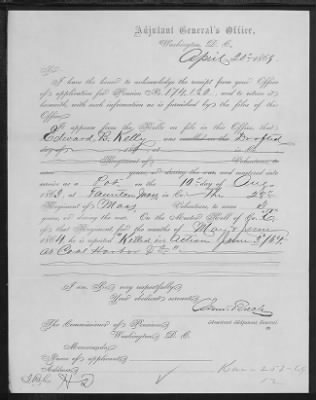 Adjutant General's Office,
Washington, D. C.
April 20th 1869
Sir:
I have the honor to acknowledge the receipt from your Office
of application for Pension No. 174,120 and to return it
herewith, with such information as is furnished by the files of this
Office.
It appears from the Rolls on file in this Office, that
Edward B. Kelly was
day of
Regiment of Volunteers, to
years, or during the war, and mustered into
service as a Pvt on the 19th day of Aug
1863, at Taunton Mass in Co. The
Regiment of Mass Volunteers, to serve 3
years, or during the war. On the Muster Roll of
of that Regiment, for the months of May & June
1864, he is reported Killed in Action June 3/64
at Coal Harbor Va"
I am, Sir, very respectfully,
Your obedient servant,
Assistant Adjutant General
The Commissioner of Pensions,
Washington, D. C.
Memoranda.
Name of applicant
Address